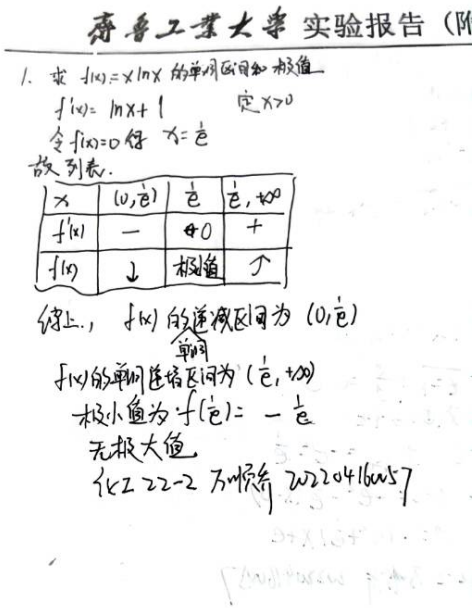 齐鲁工业大学 实验报告 (附
1. 求 f(x)=xlnx 的单调区间和极值
f'(x)= lnx+1 定 x>0
令 f'(x)=0 得 x=1/e
故列表.
x (0,1/e) 1/e 1/e,+∞
f'(x) — 0 +
f(x) ↓ 极值 ↑
综上, f(x) 的单调递减区间为 (0,1/e)
f(x)的单调递增区间为 (1/e,+∞)
极小值为 f(1/e)= -1/e
无极大值
化工 22-2